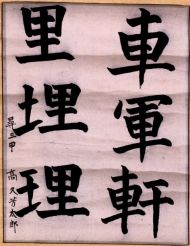 車軍軒
里埋理
尋三甲 高久芳太郎